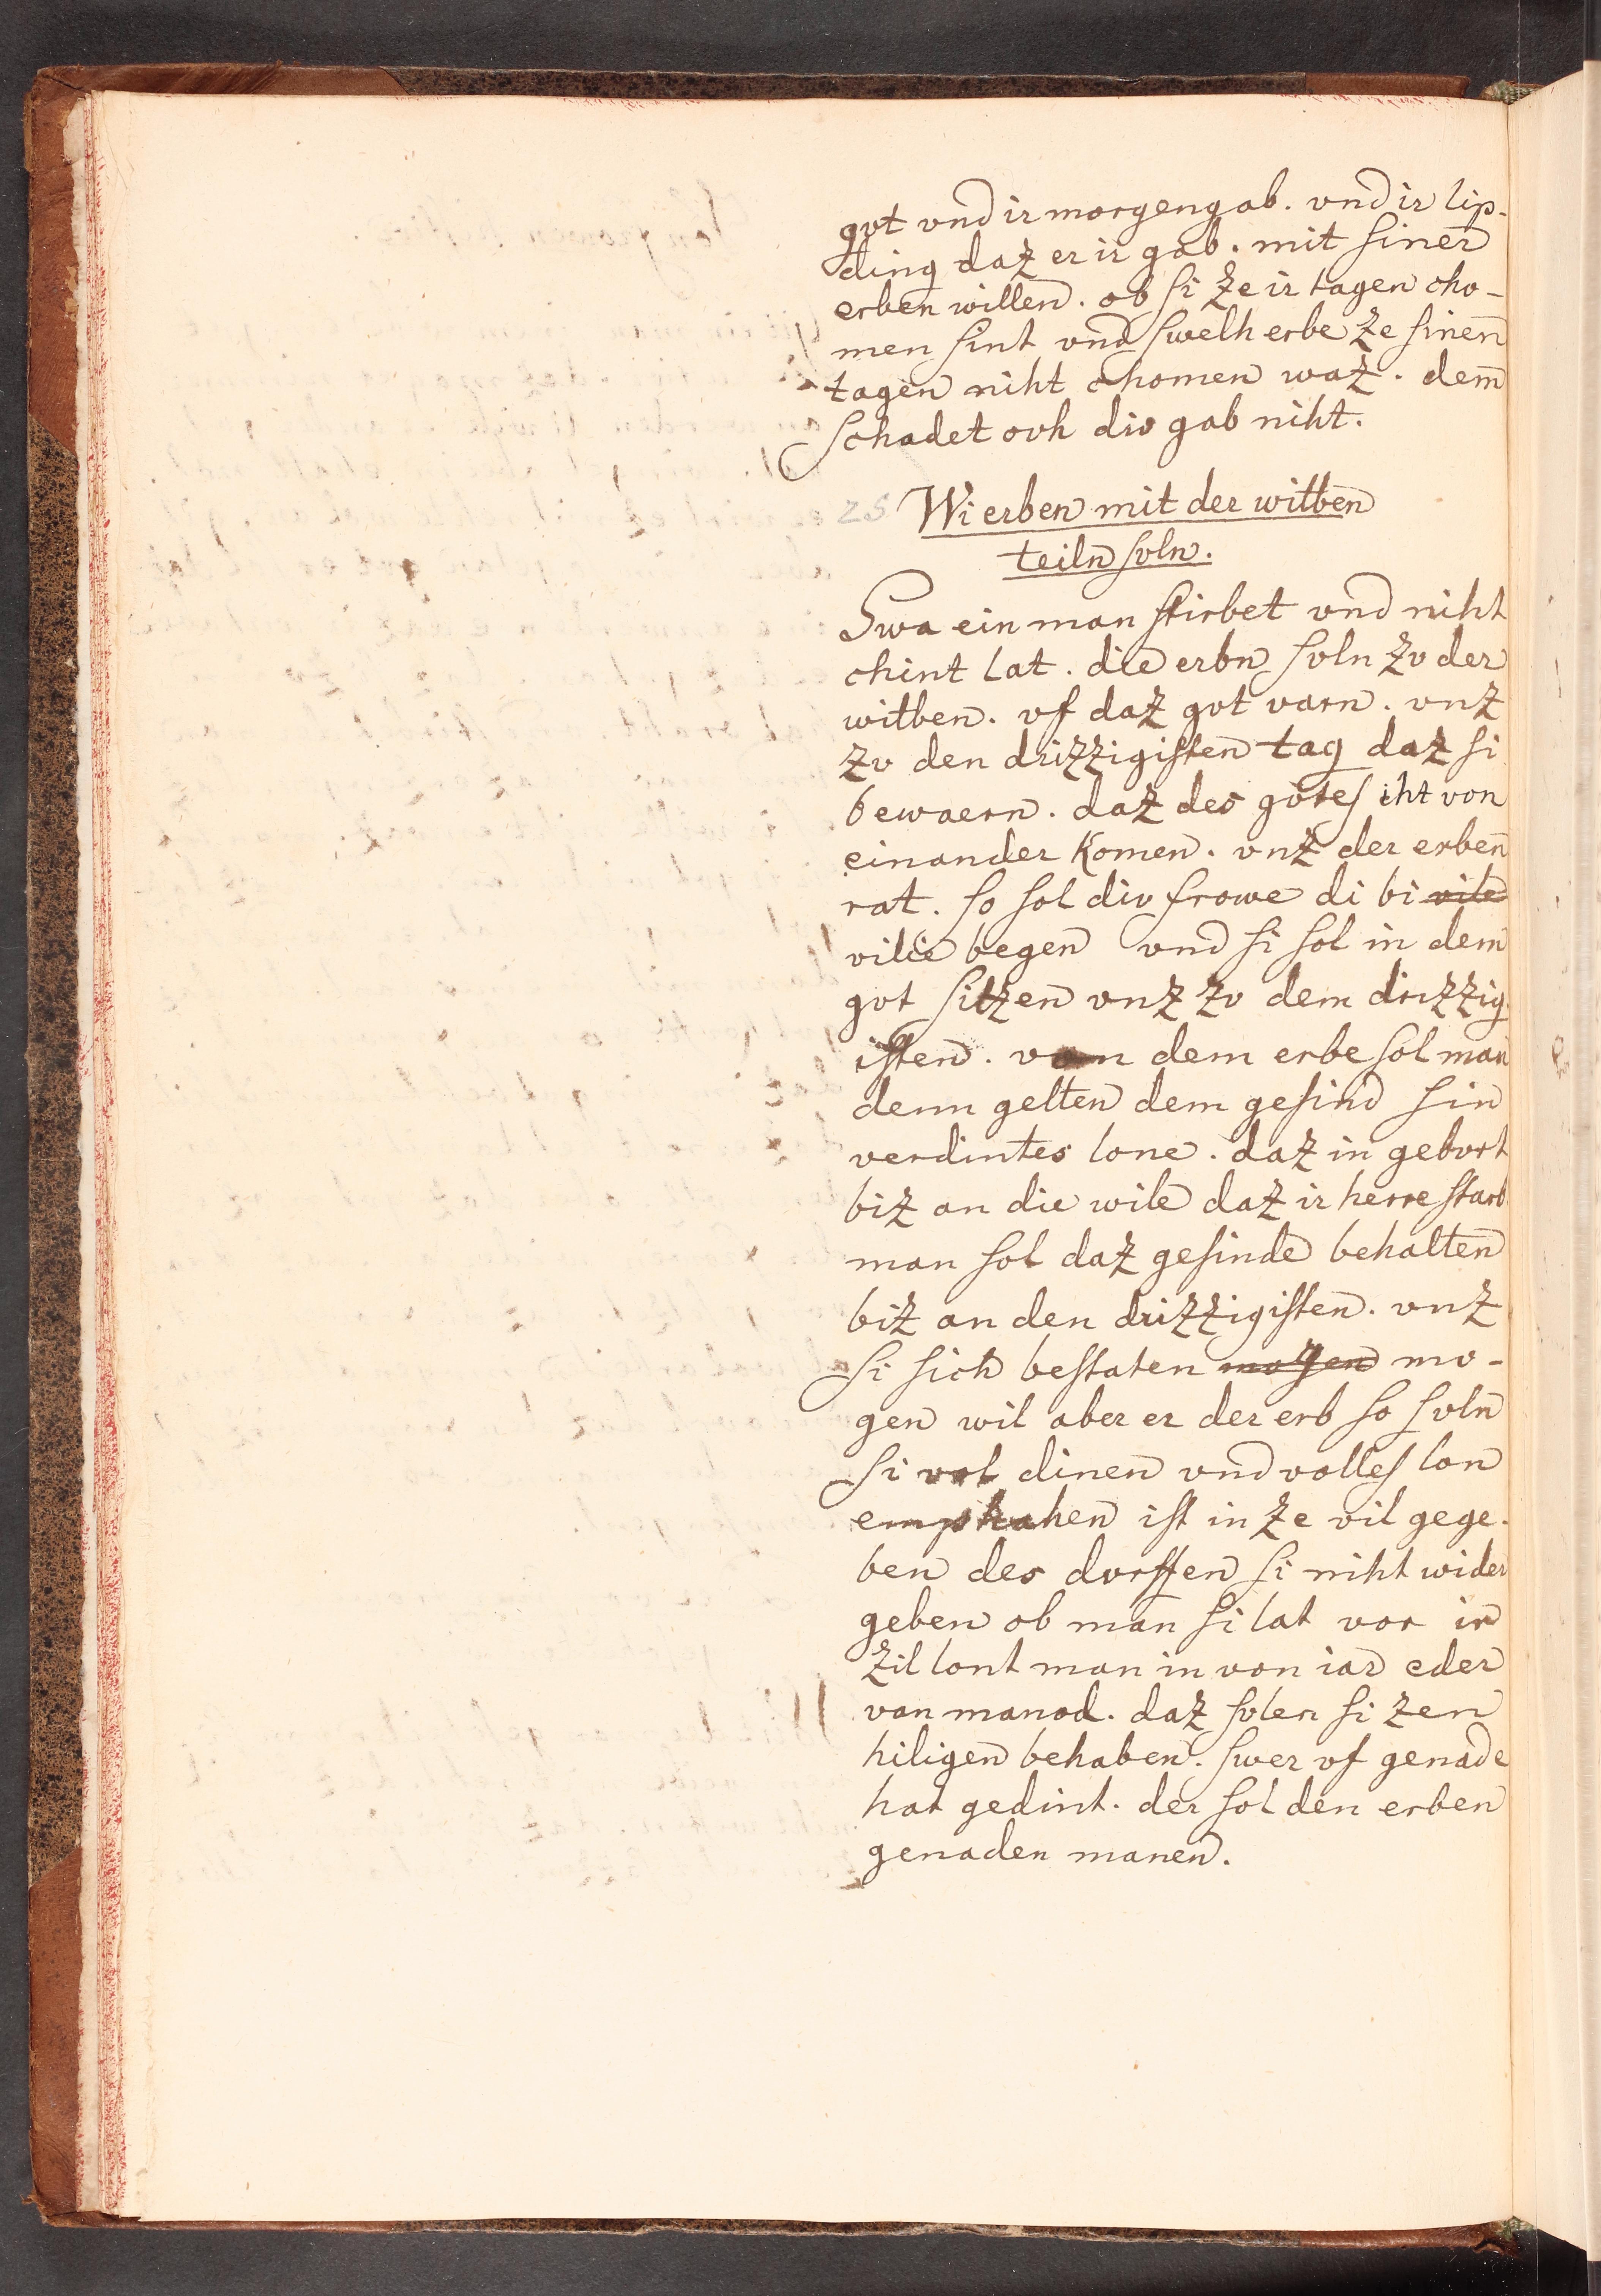 gvt vnd ir morgengab. vnd ir lip-
ding daz er ir gab. mit siner
erben willen. ob si ze ir tagen cho-
men sint vnd swelh erbe ze sinen
tagen niht chomen waz. dem
schadet ovh div gab niht.
25 Wi erben mit der witben
teiln svln.
Swa ein man stirbet vnd niht
chint lat. die erbn svln zv der
witben. vf daz gvt varn. vnz
zv den drizzigisten tag daz si
bewaern. daz des gvtes iht von
einander Komen. vnz der erben
rat. so sol div frowe di bi vile
vilie begen vnd si sol in dem
gvt sitzen vnz zv dem drizzig
isten. von dem erbe sol man
denn gelten dem gesind sin
verdintes lone. daz in gebvrt
biz an die wile daz ir herre starb
man sol daz gesinde behalten
biz an den drizzigisten. vnz
si sich bestaten mogen mo-
gen wil aber er der erb so svln
si vol dinen vnd volles lon
emphahen ist in ze vil gege-
ben des dvrffen si niht wider
geben ob man si lat vor ir
zil lont man in von iar eder
von manod. daz svlen si zen
hiligen behaben. swer vf genade
hat gedint. der sol den erben
genaden manen.